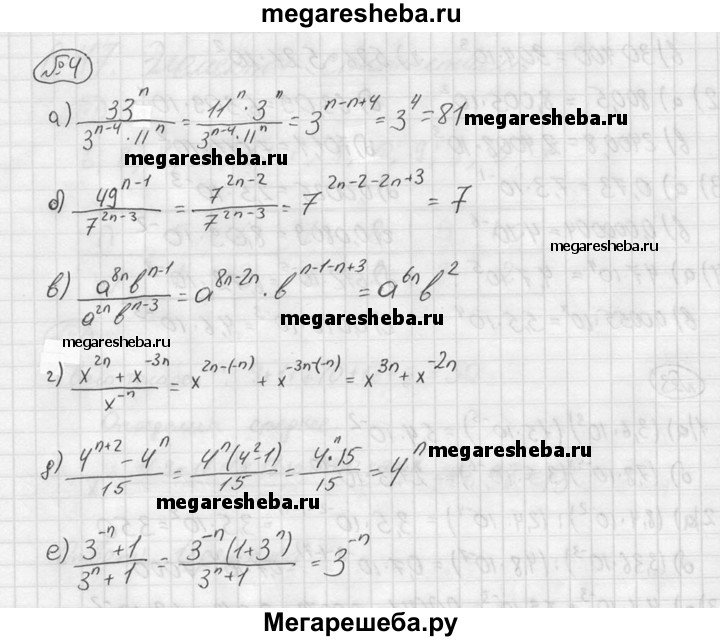 megaresheba.ru
№4
а) 33^n / (3^(n-4) · 11^n) = 11^n · 3^n / (3^(n-4) · 11^n) = 3^(n-n+4) = 3^4 = 81 megaresheba.ru
megaresheba.ru
б) 49^(n-1) / 7^(2n-3) = 7^(2n-2) / 7^(2n-3) = 7^(2n-2-2n+3) = 7
megaresheba.ru
в) a^(8n) b^(n-1) / (a^(2n) b^(n-3)) = a^(8n-2n) · b^(n-1-n+3) = a^(6n) b^2
megaresheba.ru
megaresheba.ru
г) (x^(2n) + x^(-3n)) / x^(-n) = x^(2n-(-n)) + x^(-3n-(-n)) = x^(3n) + x^(-2n)
д) (4^(n+2) - 4^n) / 15 = 4^n(4^2-1) / 15 = 4^n · 15 / 15 = 4^n megaresheba.ru
megaresheba.ru
е) (3^(-n) + 1) / (3^n + 1) = 3^(-n)(1+3^n) / (3^n+1) = 3^(-n)
Мегарешеба.ру